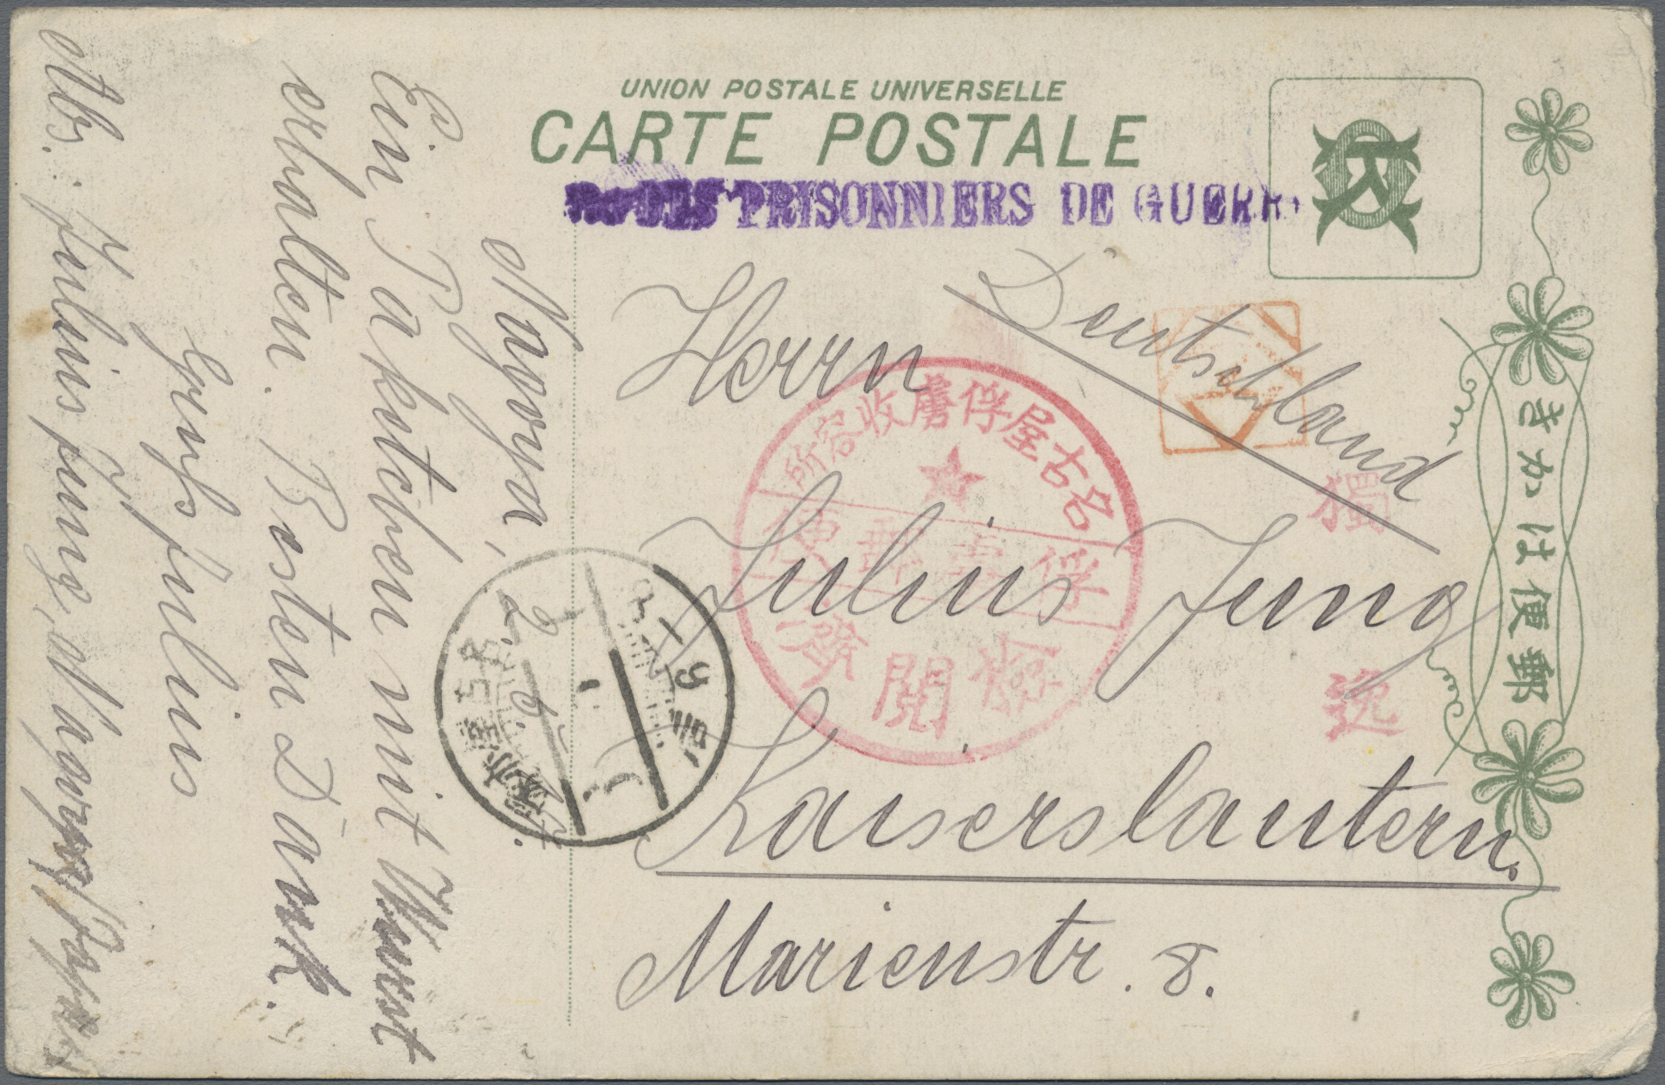 UNION POSTALE UNIVERSELLE
CARTE POSTALE
PRISONNIERS DE GUERR
Deutschland
Herrn
Julius Jung
Kaiserslautern.
Marienstr. 8.
Nagoya,
Ein Paketchen mit Wurst
erhalten. Besten Dank.
Gruß Julius
Abs.: Julius Jung, Nagoya/Japan
名古屋俘虜收容所
俘虜郵便
檢閲
獨逸
きかは便郵
名古屋